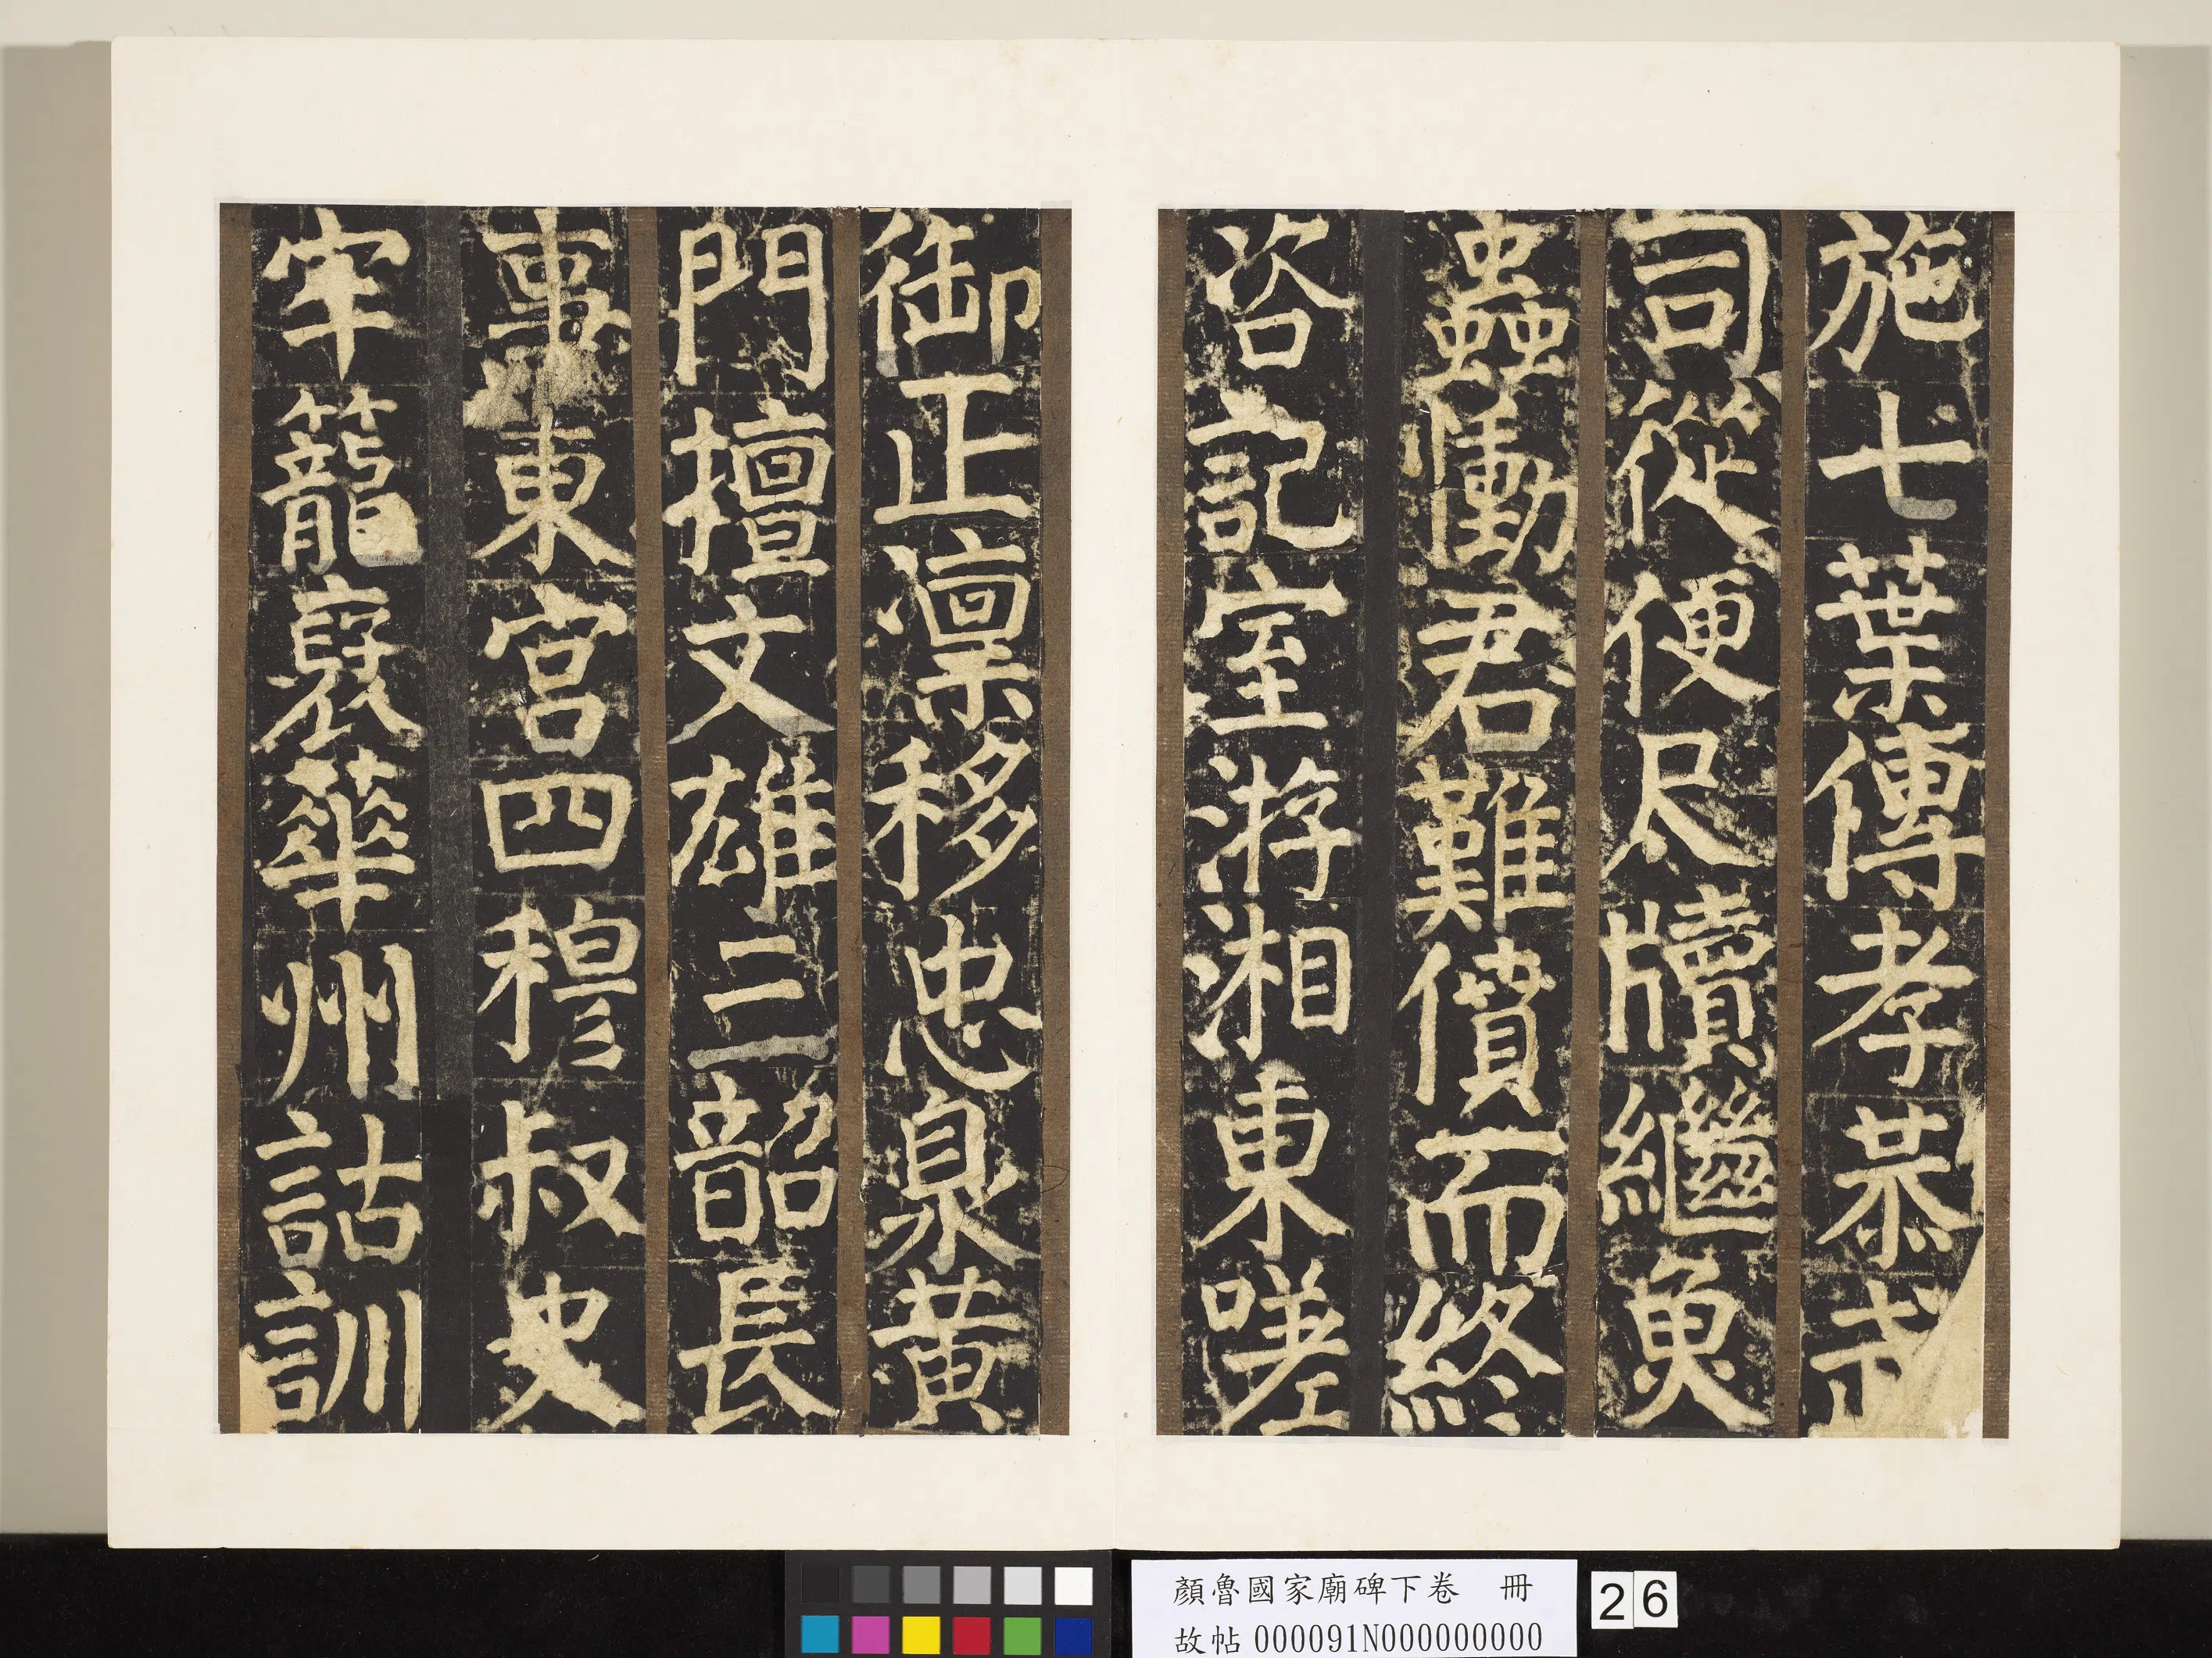 施七葉傳孝恭
司從便尺牘繼魚
蟲慟君難僨而終
咨記室游湘東嗟
御正凛移忠臮黃
門擅文雄三韶長
事東宮四穆叔史
牢籠裦華州詁訓
顏魯國家廟碑下卷 冊
故帖000091N000000000
26